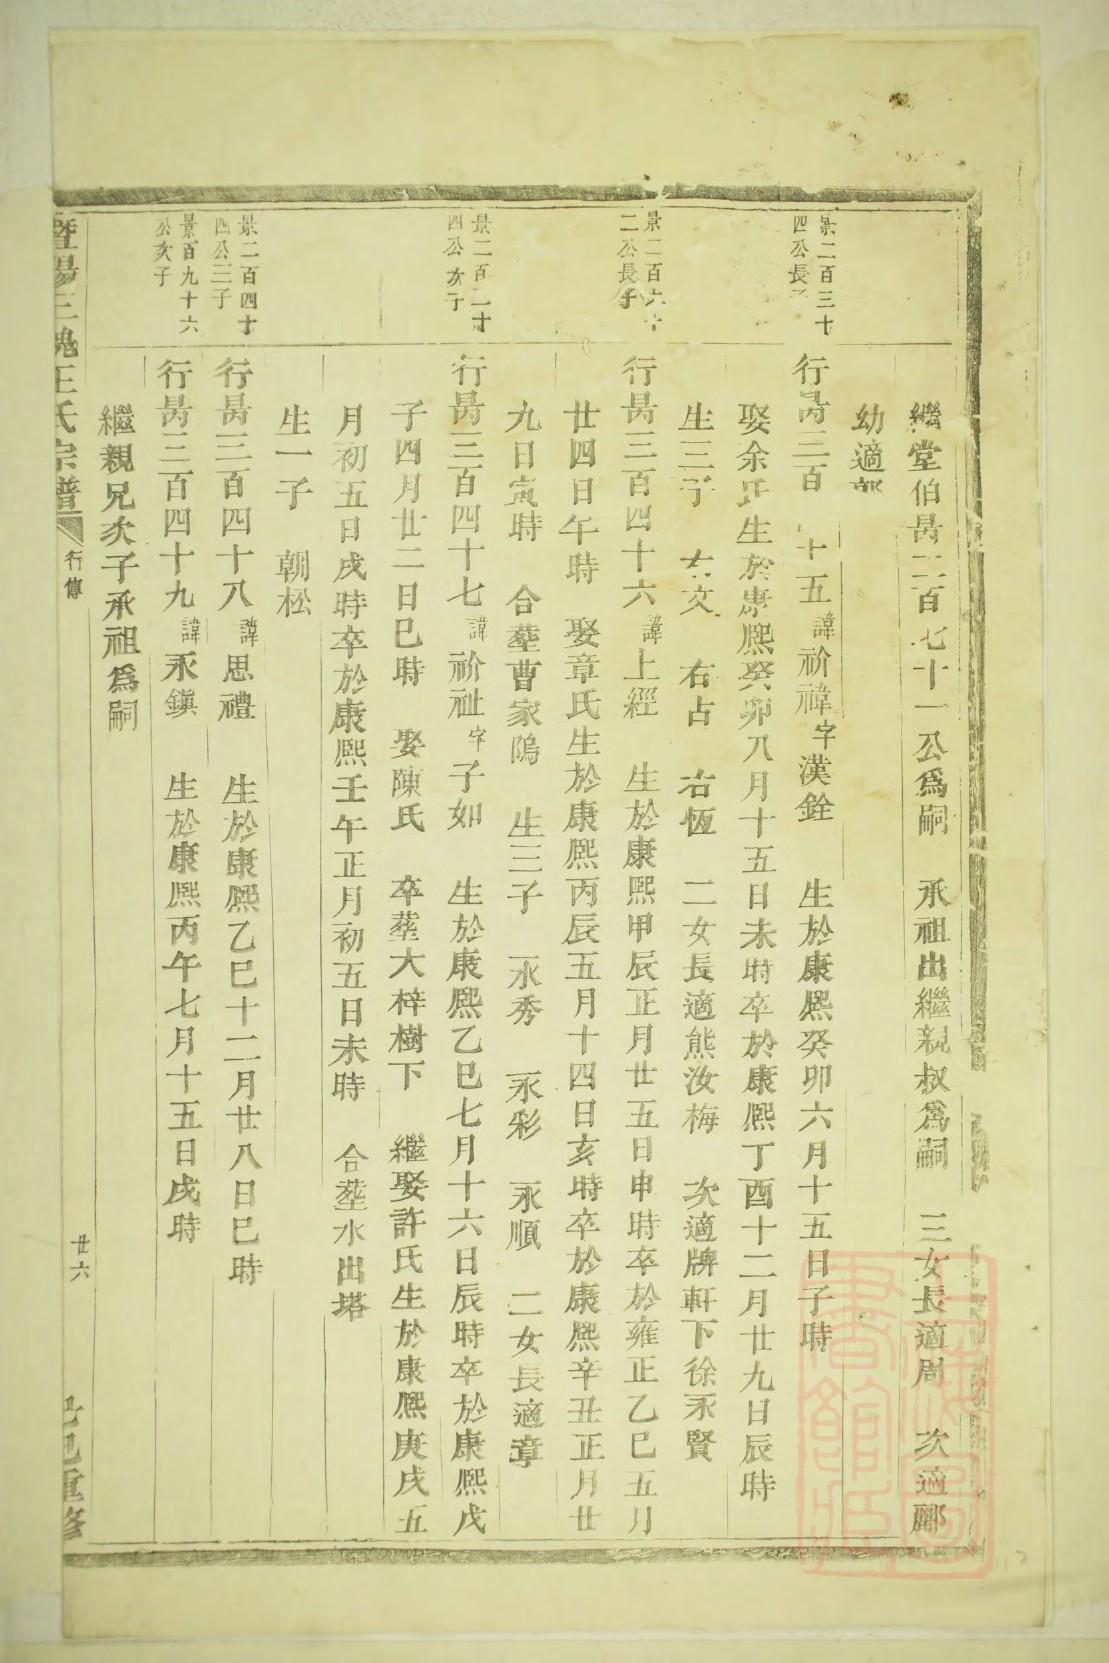 繼堂伯昺二百七十一公爲嗣　承祖出繼親叔爲嗣　三女長適周　次適酈
幼適郭
景二百三十四公長子
行昺三百　十五諱祄禕字漢銓　生於康熙癸卯六月十五日子時
娶余氏生於康熙癸卯八月十五日未時卒於康熙丁酉十二月廿九日辰時
生三子　右文　右占　右恆　二女長適熊汝梅　次適牌軒下徐永賢
景二百六十二公長子
行昺三百四十六諱上經　生於康熙甲辰正月廿五日申時卒於雍正乙巳五月
廿四日午時　娶章氏生於康熙丙辰五月十四日亥時卒於康熙辛丑正月廿
九日寅時　合塟曹家隖　生三子　永秀　永彩　永順　二女長適章
景二百二十四公次子
行昺三百四十七諱祄祉字子如　生於康熙乙巳七月十六日辰時卒於康熙戊
子四月廿二日巳時　娶陳氏　卒塟大梓樹下　繼娶許氏生於康熙庚戌五
月初五日戌時卒於康熙壬午正月初五日未時　合塟水出塔
生一子　朝松
景二百四十四公三子
行昺三百四十八諱思禮　生於康熙乙巳十二月廿八日巳時
景百九十六公次子
行昺三百四十九諱永鎮　生於康熙丙午七月十五日戌時
繼親兄次子承祖爲嗣
暨陽三槐王氏宗譜　行傳　廿六　己巳重修
上海圖書館藏